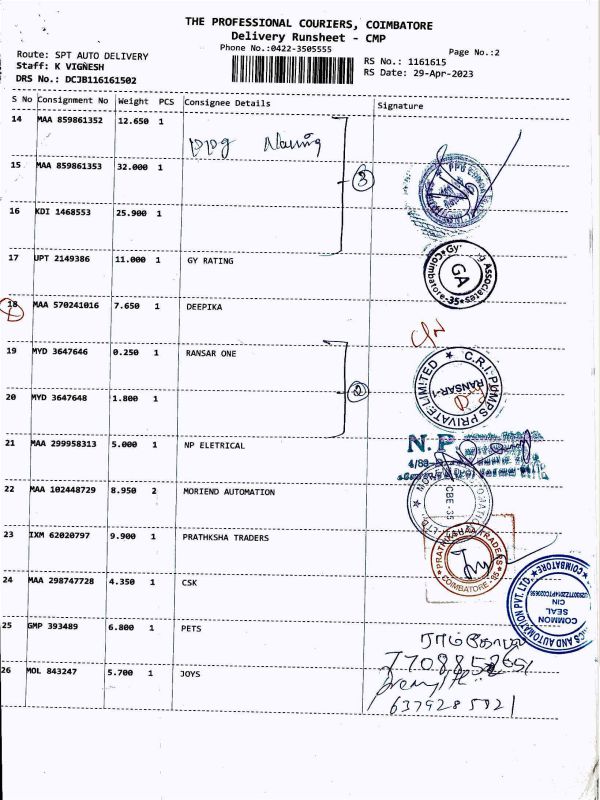 THE PROFESSIONAL COURIERS, COIMBATORE
Delivery Runsheet - CMP
Phone No.:0422-3505555
Page No.:2
Route: SPT AUTO DELIVERY
Staff: K VIGNESH
DRS No.: DCJB116161502
RS No.: 1161615
RS Date: 29-Apr-2023
S No Consignment No Weight PCS Consignee Details Signature
14 MAA 859861352 12.650 1
15 MAA 859861353 32.000 1
3
16 KDI 1468553 25.900 1
17 UPT 2149386 11.000 1 GY RATING
GA
Coimbatore-35
18 MAA 570241016 7.650 1 DEEPIKA
19 MYD 3647646 0.250 1 RANSAR ONE
C.R.I-PUMPS PRIVATE LIMITED
RANSAR-1
2
20 MYD 3647648 1.800 1
21 MAA 299958313 5.000 1 NP ELETRICAL
N.P.
22 MAA 102448729 8.950 2 MORIEND AUTOMATION
CBE-35
23 IXM 62020797 9.900 1 PRATHKSHA TRADERS
PRATHIKSHAA TRADERS
COIMBATORE-35
24 MAA 298747728 4.350 1 CSK
CS AND AUTOMATION PVT. LTD.
COIMBATORE
COMMON
SEAL
CIN
25 GMP 393489 6.800 1 PETS
7708858651
26 MOL 843247 5.700 1 JOYS
6379285021